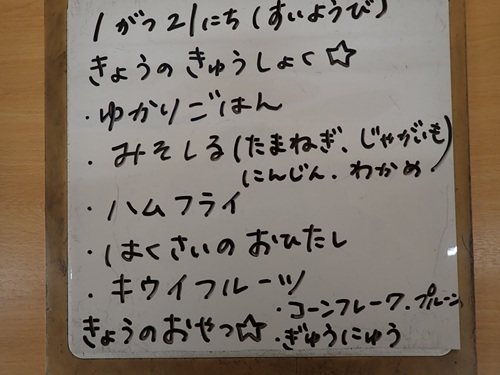 1がつ21にち(すいようび)
きょうの きゅうしょく☆
・ゆかりごはん
・みそしる(たまねぎ、じゃがいも
にんじん、わかめ)
・ハムフライ
・はくさいの おひたし
・キウイフルーツ
・コーンフレーク、プルーン
きょうのおやつ☆・ぎゅうにゅう